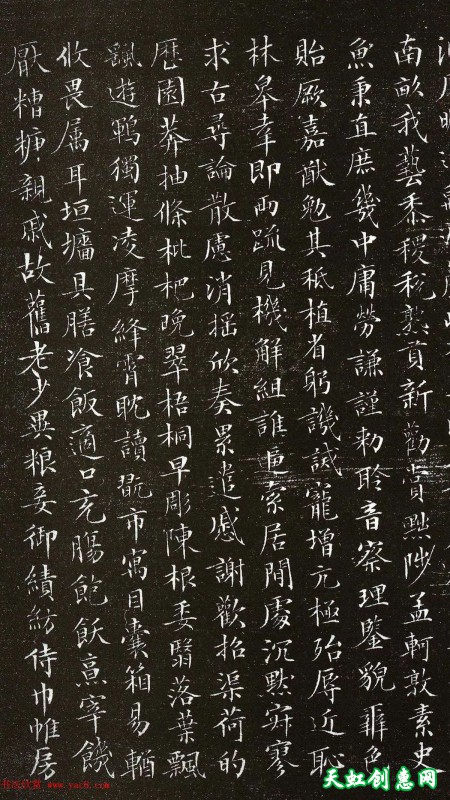 南畝我藝黍稷稅熟貢新勸賞黜陟孟軻敦素史
魚秉直庶幾中庸勞謙謹勑聆音察理鑒貌辯色
貽厥嘉猷勉其祗植省躬譏誡寵增亢極殆辱近恥
林皋幸即兩疏見機解組誰逼索居閒處沉默寂寥
求古尋論散慮消搖欣奏累遣慼謝歡招渠荷的
歷園莽抽條枇杷晚翠梧桐早彫陳根委翳落葉飄
飖遊鵾獨運凌摩絳霄耽讀翫市寓目囊箱易輶
攸畏属耳垣墻具膳飡飯適口充腸飽飫烹宰饑
厭糟糠親戚故舊老少異粮妾御績紡侍巾帷房
天虹创惠网